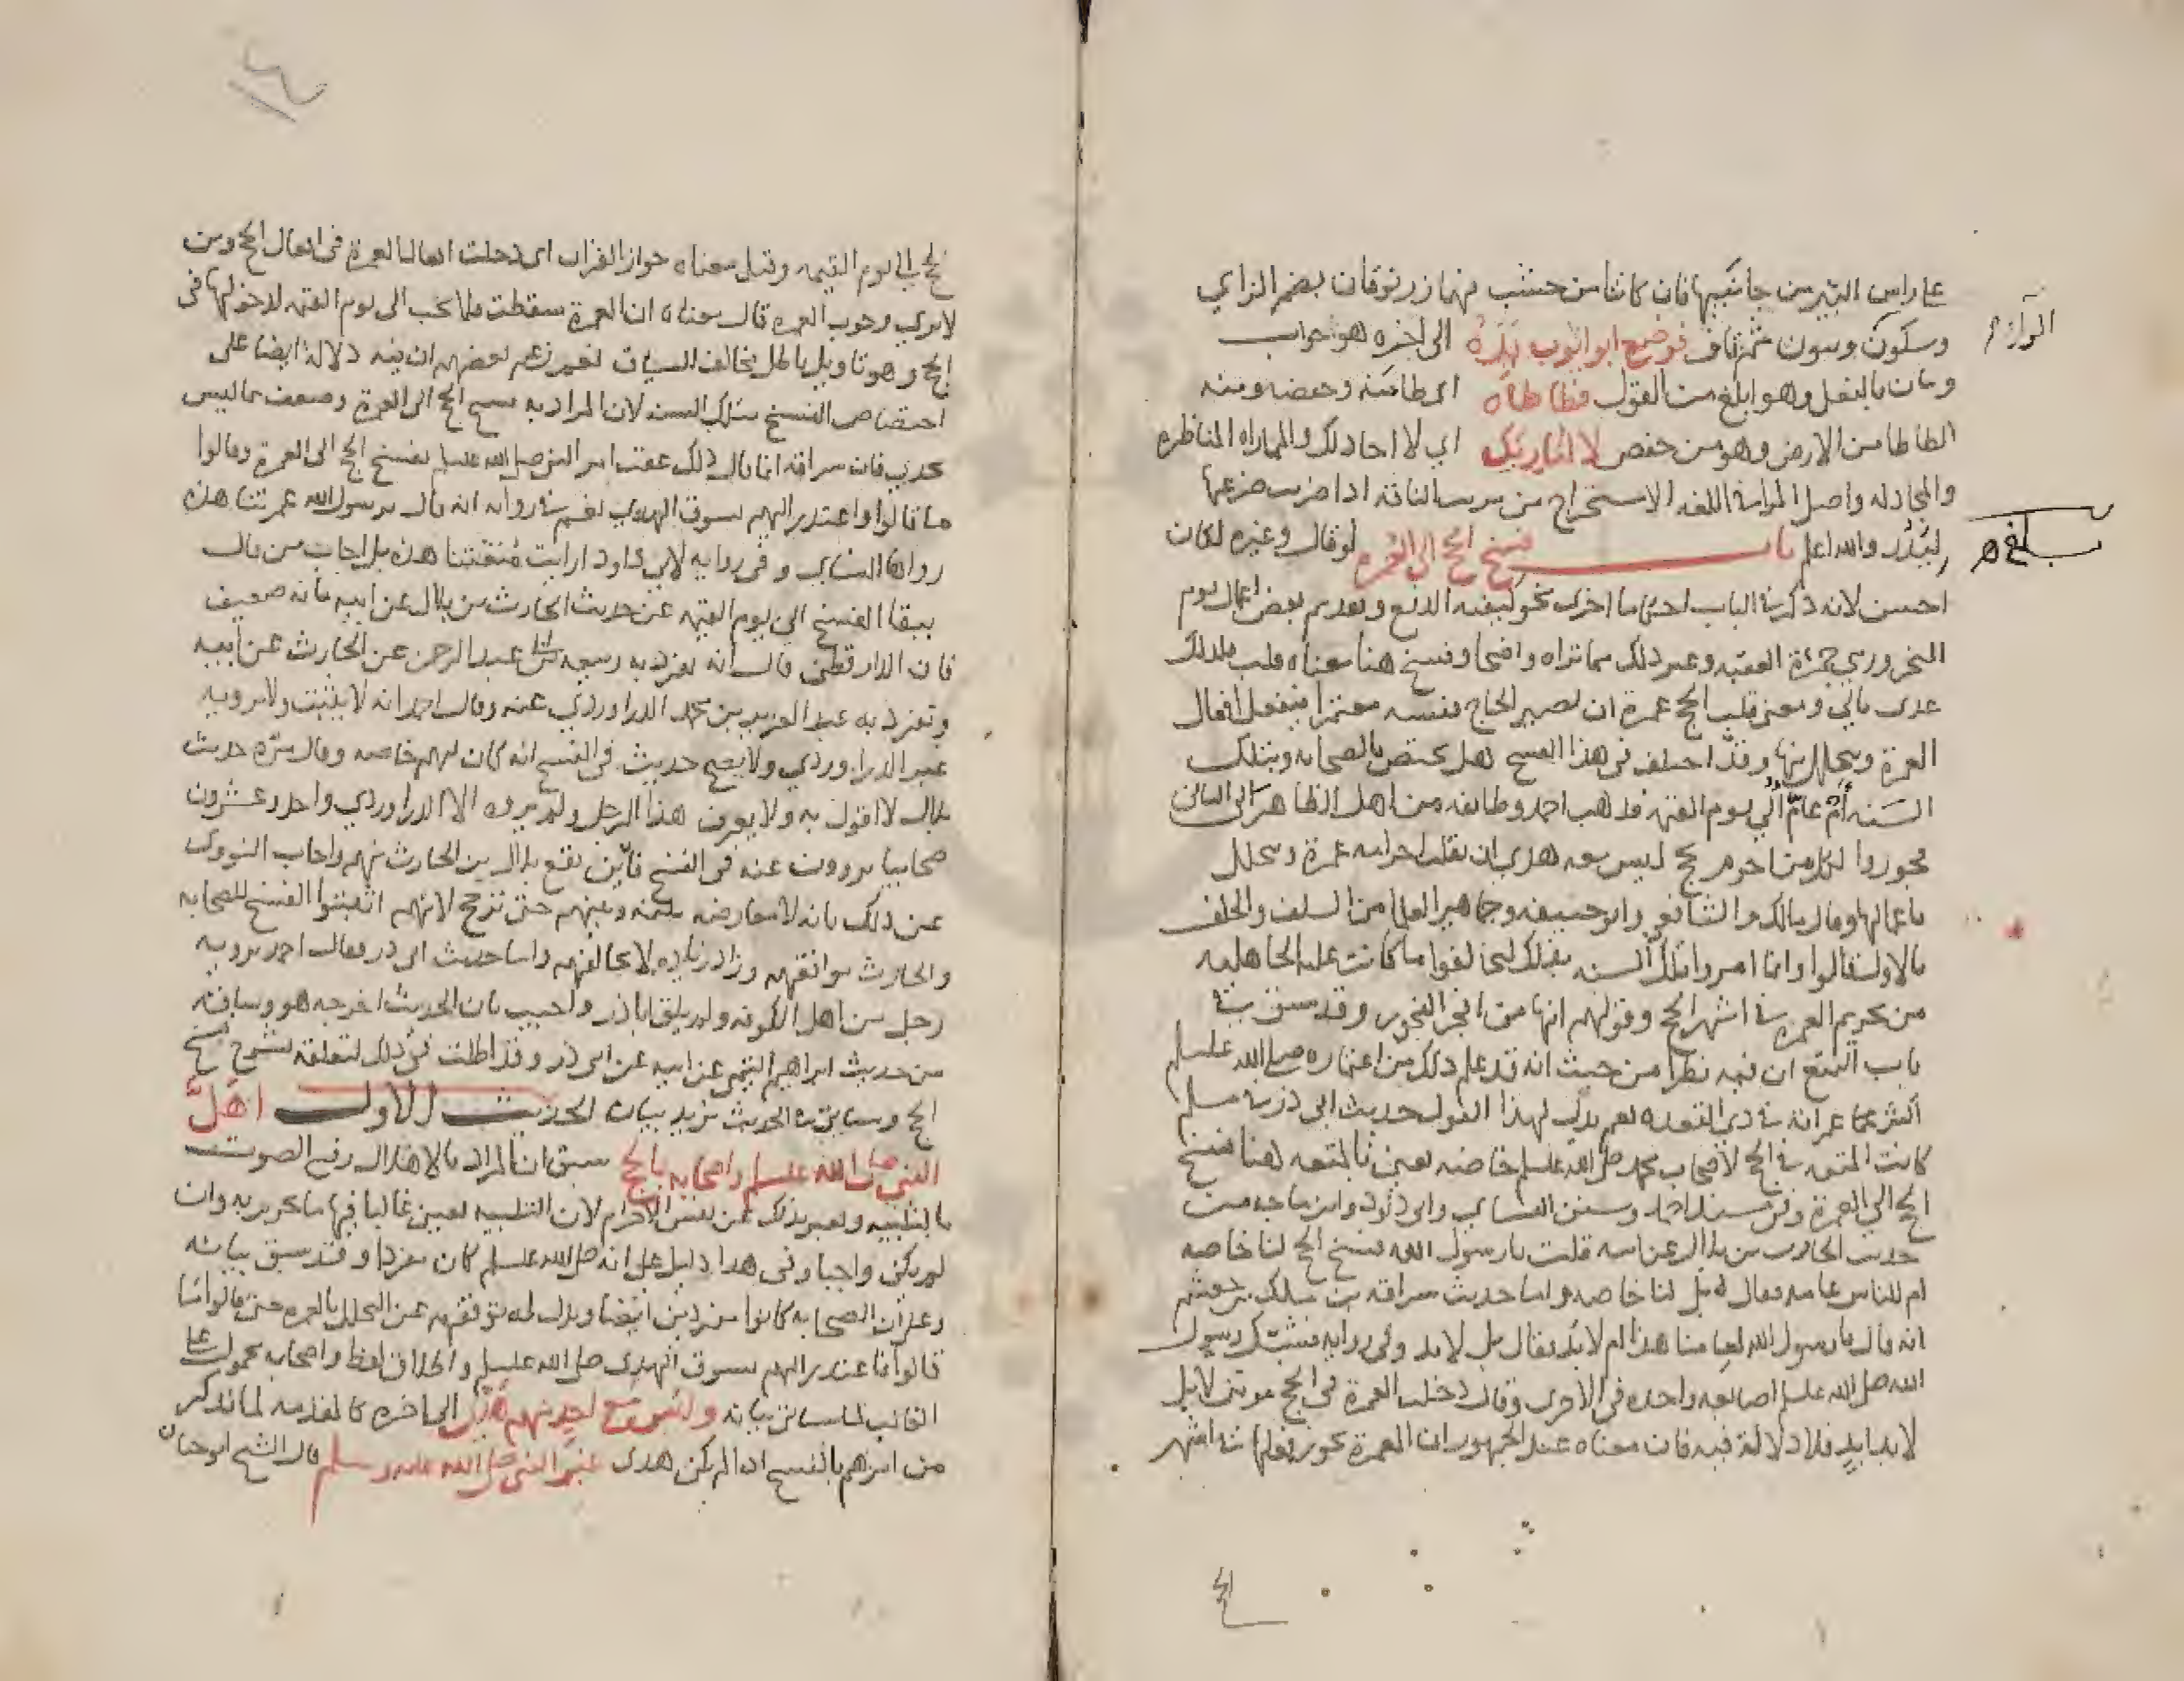 على راس البير من جانبيها فان كانتا من خشب فهما زرنوقان بضم الزاي
وسكون ونون ثم قاف فوضع ابو ايوب يده الى اخره هو جواب
وبيان بالفعل وهو ابلغ من القول فطاطاه اي طامنه وخفضه ومنه
الطاطا من الارض وهو من خفض لا اماريك اي لا اجادلك والمماراه المناظره
والمجادله واصل المراء في اللغه الاستخراج من مريت الناقه اذا ضربت ضرعها
لتدر والله اعلم باب فسخ الحج الى العمرة لو قال وغيره لكان
احسن لانه ذكر في الباب احكاما اخرى نحو كيفية الدفع وتقديم بعض اعمال يوم
النحر ورمي جمرة العقبه وغير ذلك مما تراه واضحا وفسخ هنا معناه قلب فلذلك
عدى بالى ومعنى قلب الحج عمرة ان يصير الحاج نفسه معتمرا فيفعل افعال
العمرة ويتحلل منها وقد اختلف في هذا الفسخ هل يختص بالصحابه وبتلك
السنه ام عام الى يوم القيمه فذهب احمد وطايفه من اهل الظاهر الى الثاني
فجوزوا لكل من احرم بحج ليس معه هدي ان يقلب احرامه عمرة ويتحلل
باعمالها وقال مالك والشافعي وابو حنيفه وجماهير العلما من السلف والخلف
بالاول قالوا وانما امروا تلك السنه بذلك ليخالفوا ما كانت عليه الجاهليه
من تحريم العمره في اشهر الحج وقولهم انها من افجر الفجور وقد سبق في
باب التمتع ان فيه نظرا من حيث انه قد علم ذلك من اعتماره صلى الله عليه وسلم
اكثر عمراته في ذي القعده نعم يدل لهذا القول حديث ابي ذر في مسلم
كانت المتعه في الحج لاصحاب محمد صلى الله عليه وسلم خاصه يعني بالمتعه هنا فسخ
الحج الى العمرة وفي مسند احمد وسنن النساي وابي داود وابن ماجه من
حديث الحارث بن بلال عن ابيه قلت يا رسول الله فسخ الحج لنا خاصه
ام للناس عامه فقال بل لنا خاصه واما حديث سراقه بن مالك بن جعشم
انه قال يا رسول الله لعامنا هذا ام لابد فقال بل لابد وفي روايه فشبك رسول
الله صلى الله عليه وسلم اصابعه واحده في الاخرى وقال دخلت العمرة في الحج مرتين لا بل
لابد ابد فلا دلالة فيه فان معناه عند الجمهور ان العمرة يجوز فعلها في اشهر
الحج
الحج الى يوم القيمه وقيل معناه جواز القران اى دخلت افعال العمرة في افعال الحج ومن
لا يرى وجوب العمره قال معناه ان العمرة سقطت فلا تجب الى يوم القيمه لدخولها في
الحج وهو تاويل باطل يخالف السياق نعم زعم بعضهم ان فيه دلالة ايضا على
اختصاص الفسخ بتلك السنه لان المراد به فسخ الحج الى العمرة وضعف بما ليس
يجدي فان سراقة انما قال ذلك عقب امر النبي صلى الله عليه وسلم بفسخ الحج الى العمرة وقالوا
ما قالوا واعتذر اليهم بسوق الهدي نعم في روايه انه قال يرسول الله عمرتنا هذه
رواها النساي وفي روايه لابي داود ارايت متعتنا هذه بل اجاب من قال
ببقا الفسخ الى يوم القيمه عن حديث الحارث بن بلال عن ابيه بانه ضعيف
فان الدارقطني قال انه تفرد به ربيعه بن عبد الرحمن عن الحارث عن ابيه
وتفرد به عبد العزيز بن محمد الدراوردي عنه وقال احمد انه لا يثبت ولا يرويه
غير الدراوردي ولا يصح حديث في الفسخ انه كان لهم خاصه وقال مرة حديث
بلال لا اقول به ولا يعرف هذا الرجل ولم يروه الا الدراوردي واحد وعشرون
صحابيا يروون عنه في الفسخ فاين يقع بلال بن الحارث منهم واجاب النووي
عن ذلك بانه لا معارضه بينه وبينهم حتى ترجح لانهم اثبتوا الفسخ للصحابه
والحارث يوافقهم وزاد زياده لا تخالفهم واما حديث ابي ذر فقال احمد يرويه
رجل من اهل الكوفه ولم يلق ابا ذر واجيب بان الحديث اخرجه هو وساقه
من حديث ابراهيم التيمي عن ابيه عن ابي ذر وقد اطلت في ذلك لتعلقه بشرح فسخ
الحج وسياتي في الحديث مزيد بيان الحديث الاول اهل
النبي صلى الله عليه وسلم واصحابه بالحج سبق ان المراد بالاهلال رفع الصوت
بالتلبيه ويعبر بذلك عن نفس الاحرام لان التلبيه تعين غالبا فيها ما يحرم به وان
لم يكن واجبا وفي هذا دليل على انه صلى الله عليه وسلم كان مفردا وقد سبق بيانه
وعلى ان الصحابه كانوا مفردين ايضا ويدل له توقفهم عن التحلل بالعمره حتى قالوا ما
قالوا فاعتذر اليهم بسوق الهدي صلى الله عليه وسلم واطلاق لفظ واصحابه محمول على
الغالب لما سياتي بيانه وليس مع احد منهم هدي الى اخره كالمقدمه لما يذكر
من امرهم بالفسخ اذا لم يكن هدى غير النبي صلى الله عليه وسلم قال الشيخ ابو حيان